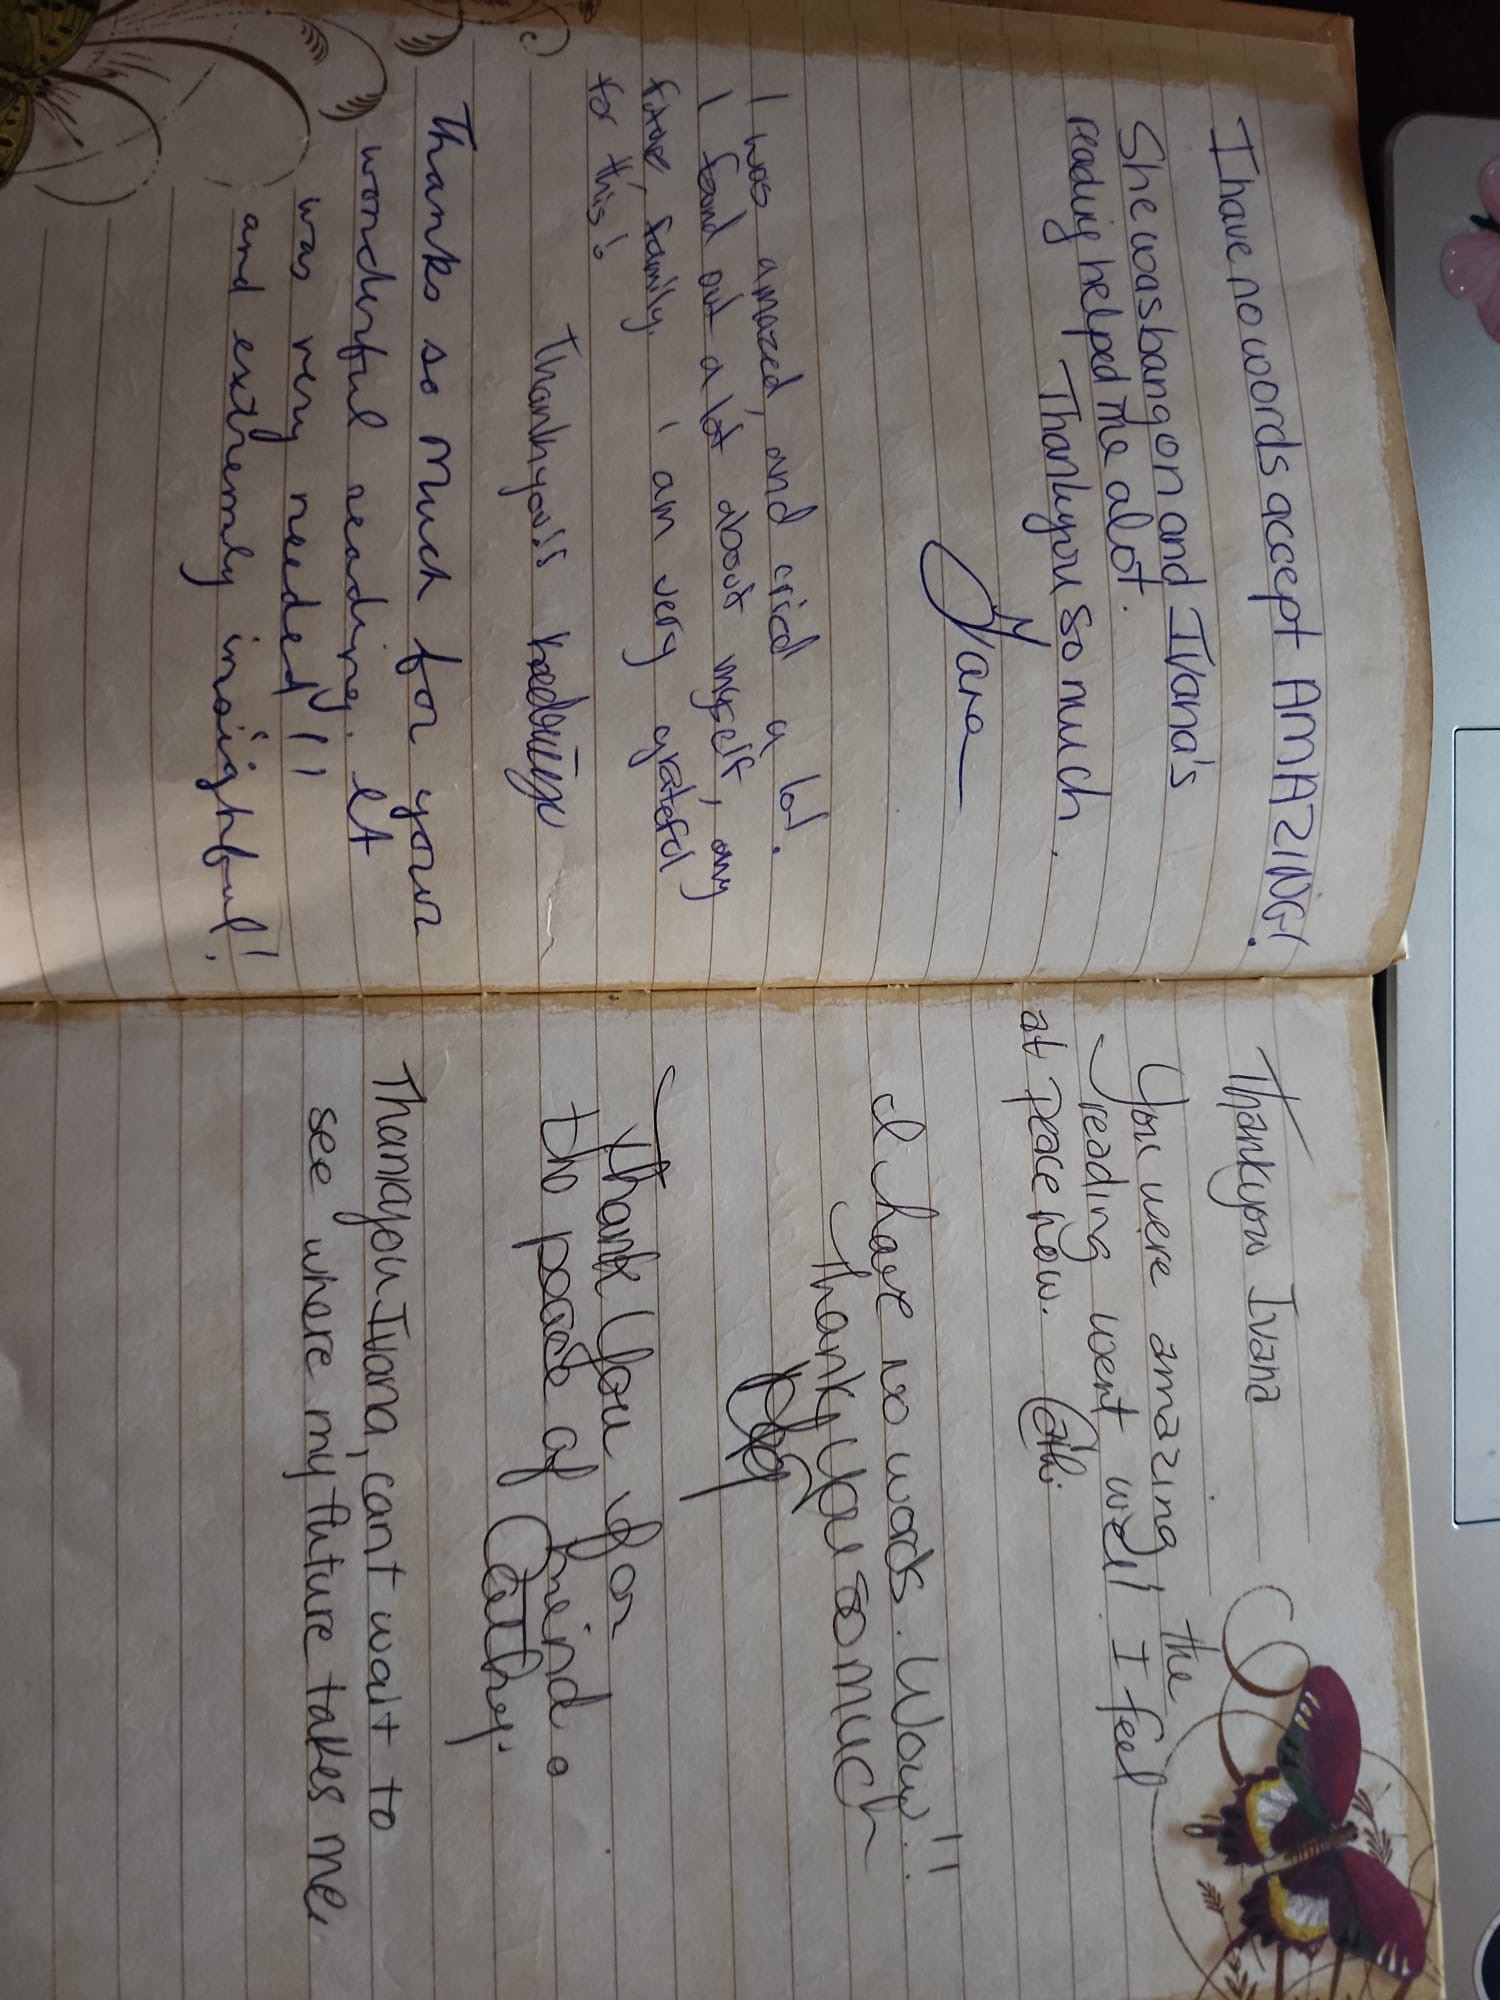 I have no words accept AMAZING!
She was bang on and Ivana's
reading helped me alot.
Thankyou so much.
Yana
I was amazed, and cried a lot.
I found out a lot about myself, any
future, family. I am very grateful
for this!
Thankyou!!
Thanks so much for your
wonderful reading. It
was very needed!!
and extremely insightful!
Thankyou Ivana
You were amazing the
reading went well! I feel
at peace now. Cathi
I have no words. Wow!!
Thank you so much
Thank You for
the peace of mind.
Cathey.
Thankyou Ivana, cant wait to
see where my future takes me.